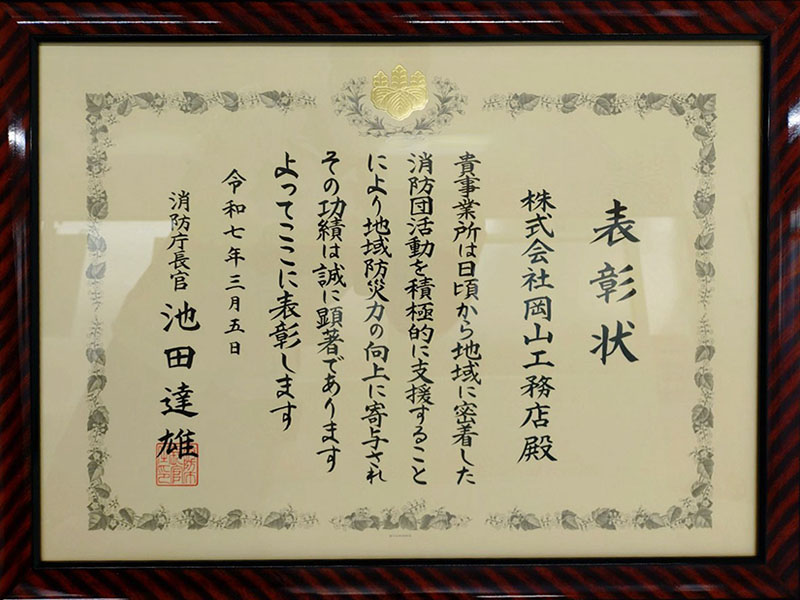 表彰状
株式会社岡山工務店殿
貴事業所は日頃から地域に密着した
消防団活動を積極的に支援すること
により地域防災力の向上に寄与され
その功績は誠に顕著であります
よってここに表彰します
令和七年三月五日
消防庁長官 池田達雄